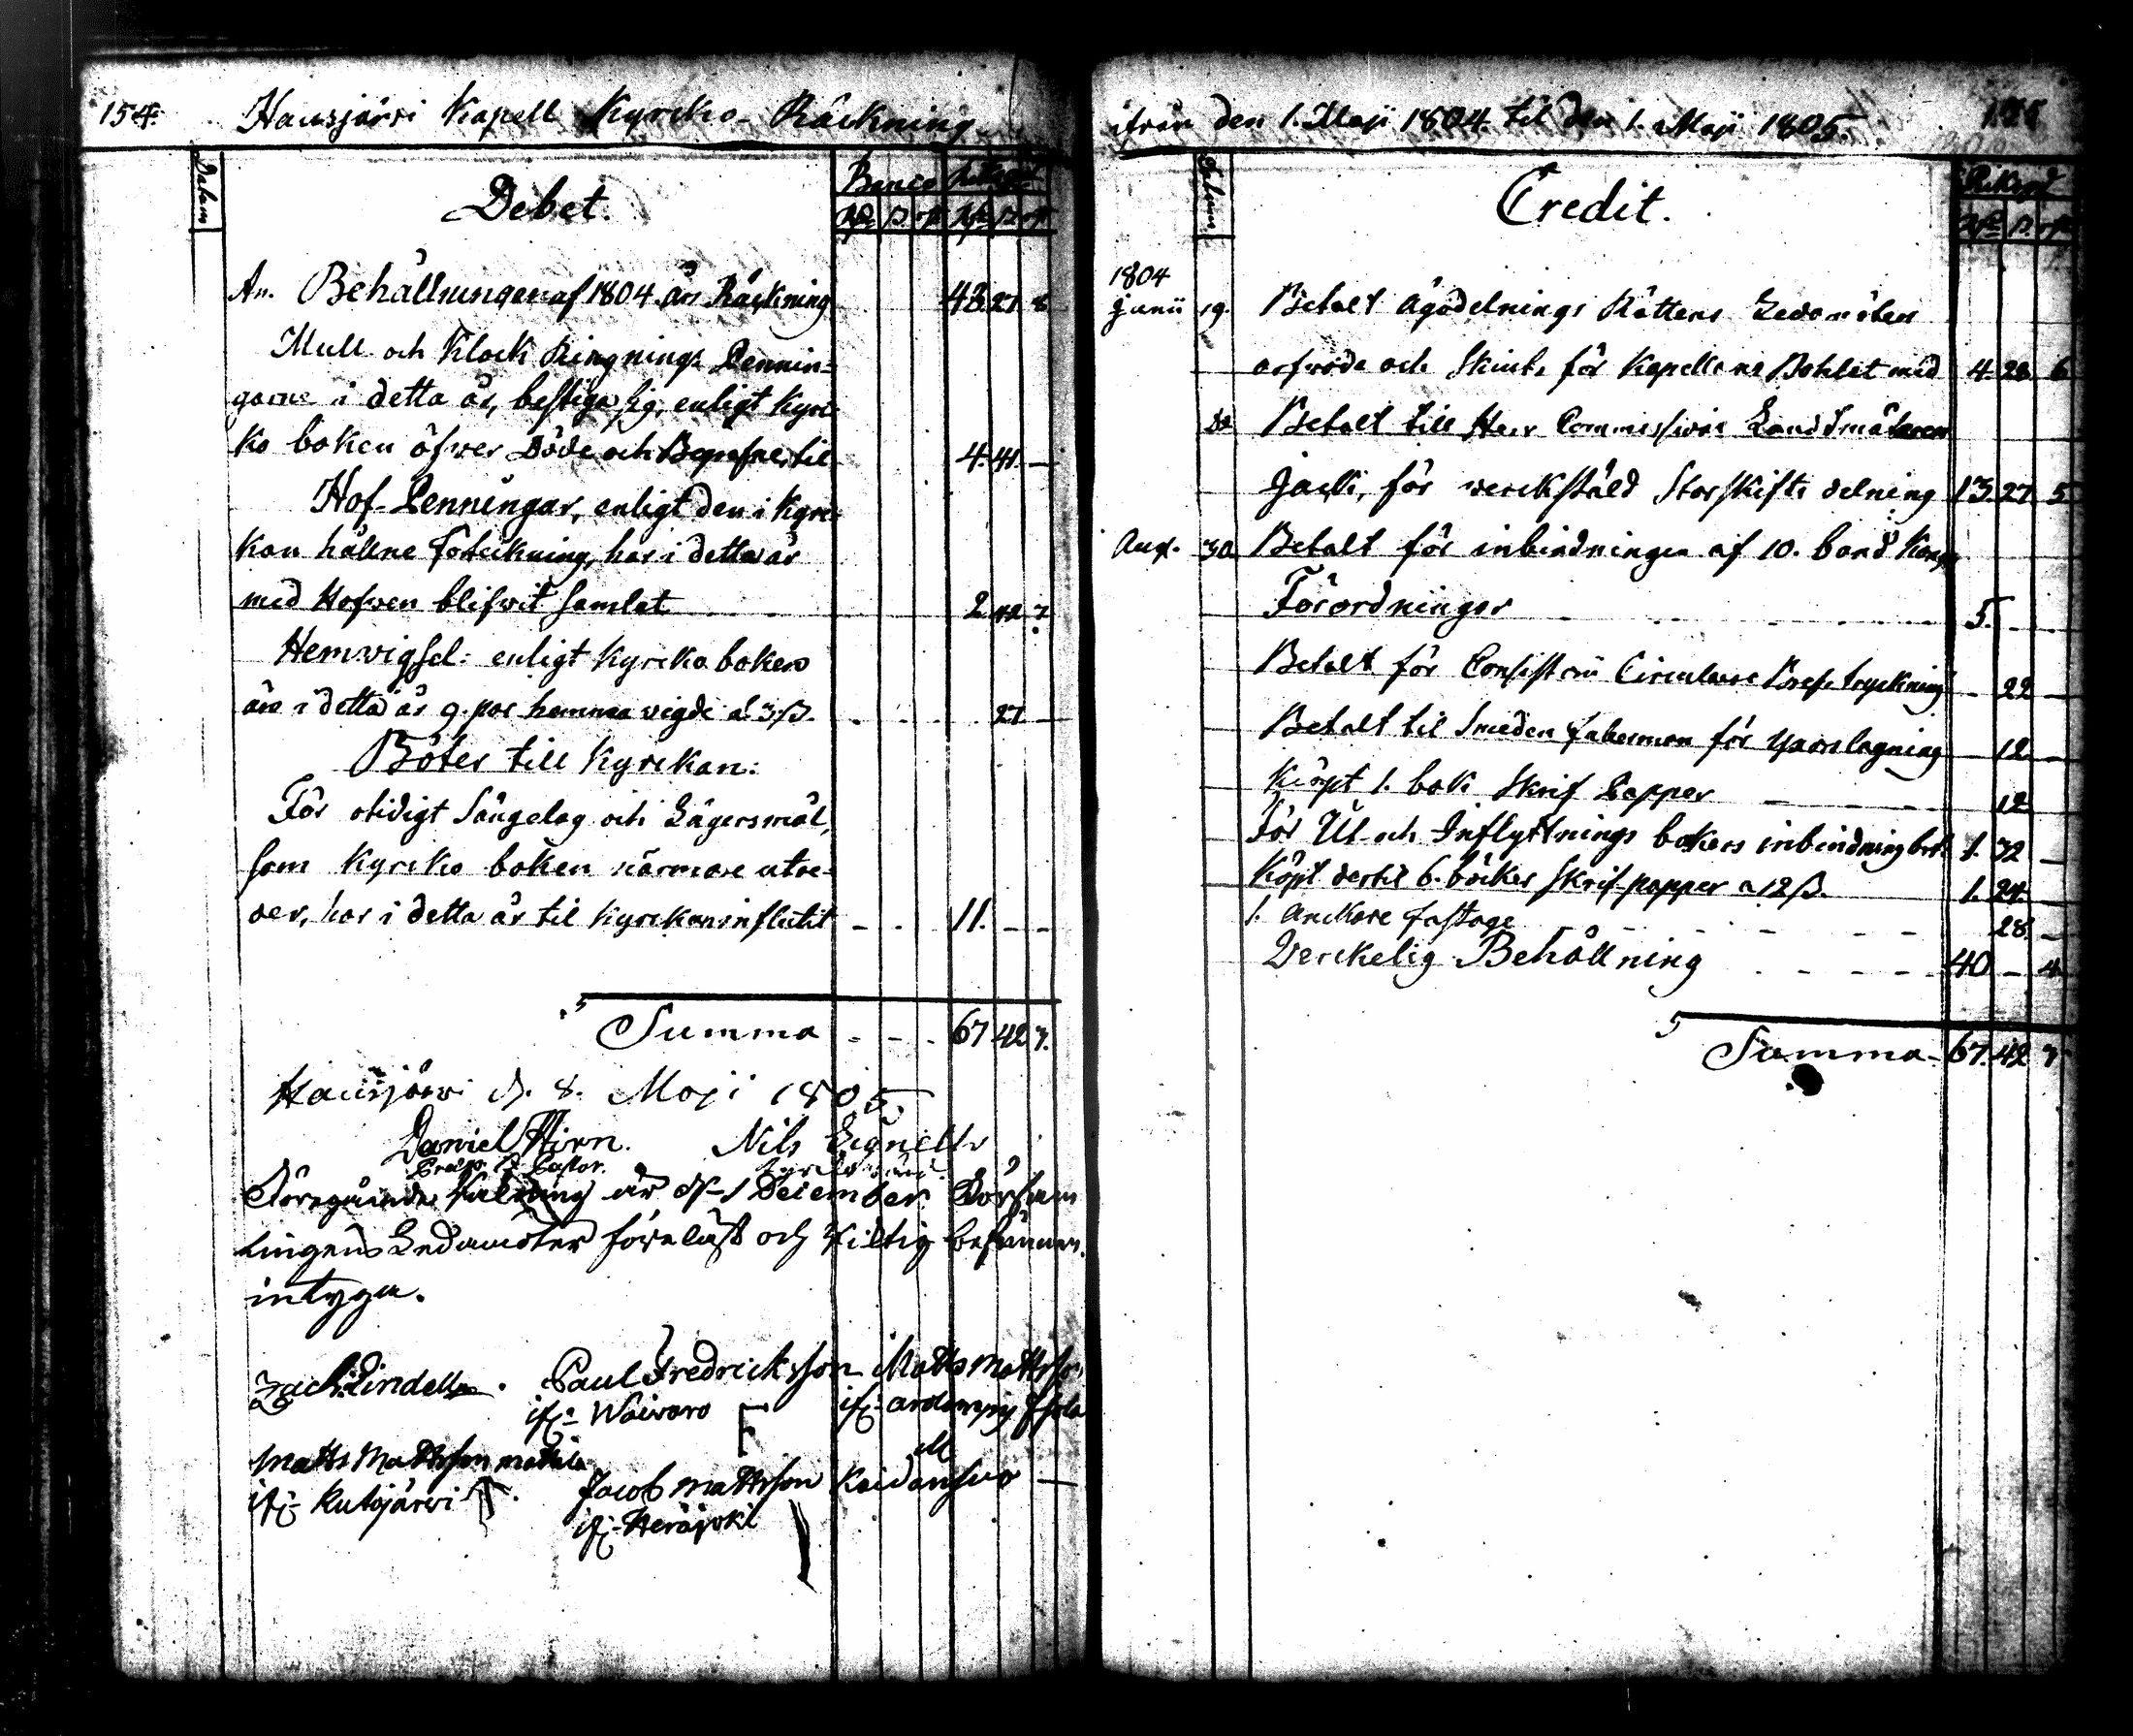 154.
Hausjärvi Kapell Kyrcko-Räckning
Datum
Debet.
Banco
Rd. ß. rst. Rd. ß. rst.
An. Behållningen af 1804 års Räckning 43. 27. 8
Mull och Klock Ringnings Pennin-
garne i detta år, bestiga sig, enligt Kyrc-
ko boken öfwer Döde och Begrafne, til 4. 41. —
Hof-Penningar, enligt den i Kyrc-
kan hållne Förteckning, har i detta år
med Hofwen blifwit samlat 2. 42. 7.
Hemvigsel: enligt Kyrcko boken
äro i detta år 9. par hemma vigde a 3 ß. 27. —
Böter till Kyrckan:
För otidigt Sängelag och Lägersmål,
som Kyrcko boken närmare utre-
der, har i detta år til Kyrckan influtit 11. — —
Summa 67. 42. 7.
Hausjärvi d. 8. Maji 1805.
Daniel Hirn. Nils Lignell
Pastor.
Föregående Räkning är d. 1 December Församlingens
Ledamöter föreläst och riktig befunnen.
intyga.
Zach Lindell. Paul Fredricksson Matts Mattsson
ifr. Waivaro
Matts Mattsson Mattila
ifr. Kutojärvi Jacob Mattsson Kaidansuo —
ifr. Heräjoki
ifrån den 1. Maji 1804. til den 1. Maji 1805.
155
Datum
Credit.
Riksgd
Rd. ß. rst.
1804
Junii 19. Betalt Ägodelnings Rättens Ledamöters
arfwode och Skiuts för Kapellans Bohlet med 4. 28. 6
do Betalt till Herr Commissions Landtmätaren
för werckstäld Storskifts delning 13. 27. 5
Aug. 30. Betalt för inbindningen af 10. band Kongl.
Förordningar 5. — —
Betalt för Consistorii Circulaire Brefs tryckning — 22 —
Betalt til Smeden Faberman för 12 —
Köpt 1. bok Skrif Papper 12
För Ut- och Inflyttnings bokens inbindning bet. 1. 32 —
Köpt dertil 6. böcker Skrif-papper a 12 ß. 1. 24. —
1. Anckare fastage 28. —
Verckelig Behållning 40 — 4
Summa 67. 42 7